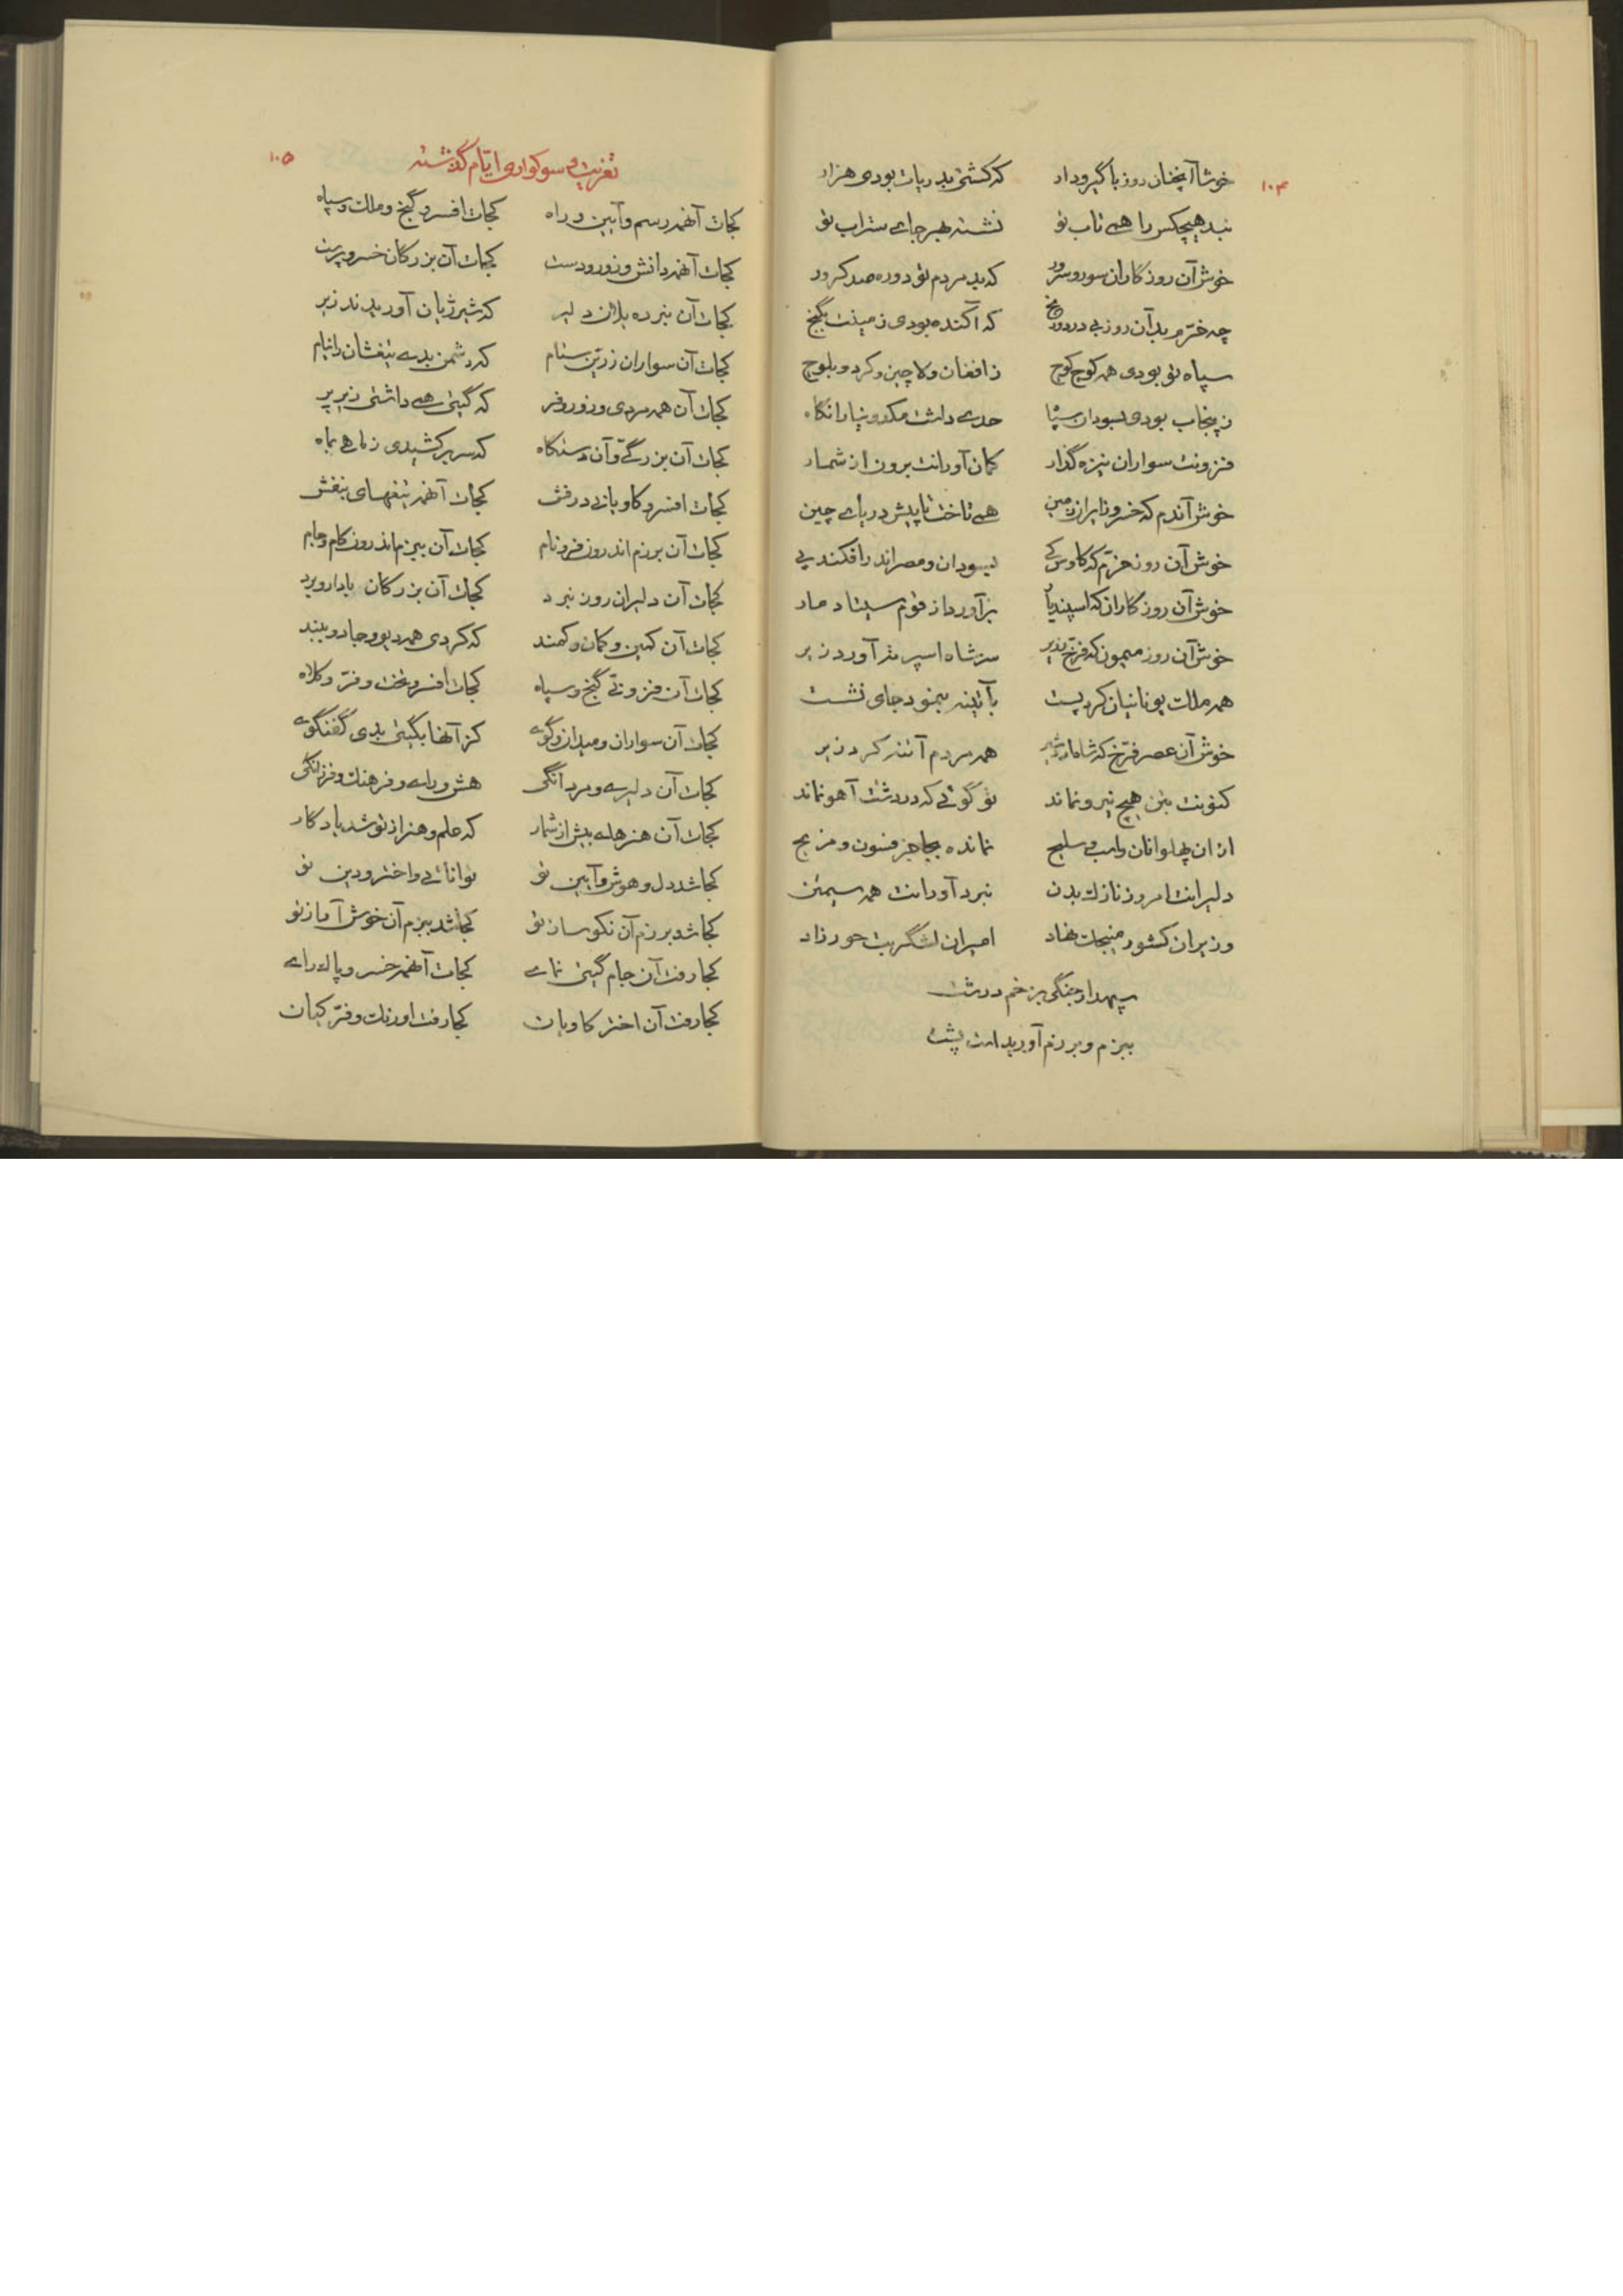 ۱۰۴
خوشا آنچنان روز با گیرودار که کشتی بدریات بودی هزار
نبد هیچکس را همی تاب تو نشسته بهر جای ستراب تو
خوش آن روزگاران سور و سرور که بد مردم تو دوره صد کرور
چه خرّم بد آن روز بی درد و رنج که آکنده بودی زمینت بگنج
سپاه تو بودی همه کوچ کوچ ز افغان و لاچین و کرد و بلوچ
ز پنجاب بودی بسودان سپا حدی داشت مکدونیا رانگاه
فزونت سواران نیزه گذار کمان آورانت برون از شمار
خوش آندم که خسرو ز ایران زمین همی تاخت تا پیش دریای چین
خوش آن روز خرّم که کاوس کی بسودان و مصر اندر افکند پی
خوش آن روزگاران که اسپندیار برآورد از قوم سیتا دمار
خوش آن روز میمون که فرّخ زریر سر شاه اسپرته آورد زیر
همه ملک یونانیان کرد پست بآتینه بنمود جای نشست
خوش آن عصر فرّخ که شاه اردشیر همه مردم آتنه کرد زیر
کنونت بتن هیچ نیرو نماند تو گوئی که در دشت آهو نماند
از ان پهلوانان واسب و سلیح نمانده بجا جز فسون و مزیح
دلیرانت امروز نازک بدن نبرد آورانت همه سیمتن
وزیران کشور منیجک نهاد امیران لشگریت حور زاد
سپهدار جنگی بزخم درشت
ببزم و برزم آوریدات پشت
تعزیت و سوکواری ایّام گذشته ۱۰۵
کجات آنهمه رسم و آیین و راه کجات افسر و گنج و ملک و سپاه
کجات آنهمه دانش و زور و دست کجات آن بزرگان خسرو پرست
کجات آن نبرده یلان دلیر که شیر ژیان آوریدند زیر
کجات آن سواران زرّین ستام که دشمن بدی تیغشان را نیام
کجات آن همه مردی و زور و فر که گیتی همی داشتی زیر پر
کجات آن بزرگی و آن دستگاه که سر بر کشیدی ز ماهی بماه
کجات افسر و کاویانی درفش کجات آنهمه تیغهای بنفش
کجات آن برزم اندرون فرّ و نام کجات آن ببزم اندرون کام و جام
کجات آن دلیران روز نبرد کجات آن بزرگان با دار و برد
کجات آن کمین و کمان و کمند که کردی همه دیو و جادو ببند
کجات آن فزونی گنج و سپاه کجات افسر و تخت و فرّ و کلاه
کجات آن سواران و میدان و گوی کز آنها بگیتی بدی گفتگوی
کجات آن دلیری و مردانگی هش و رای و فرهنگ و فرزانگی
کجات آن هنرهای بیش از شمار که علم و هنر از تو شد یادگار
کجا شد دل و هوش و آیین تو توانائی و اختر و دین تو
کجا شد برزم آن نکو ساز تو کجا شد ببزم آن خوش آواز تو
کجا رفت آن جام گیتی نمای کجات آنهمه خسرو پاک رای
کجا رفت آن اختر کاویان کجا رفت اورنگ و فرّ کیان